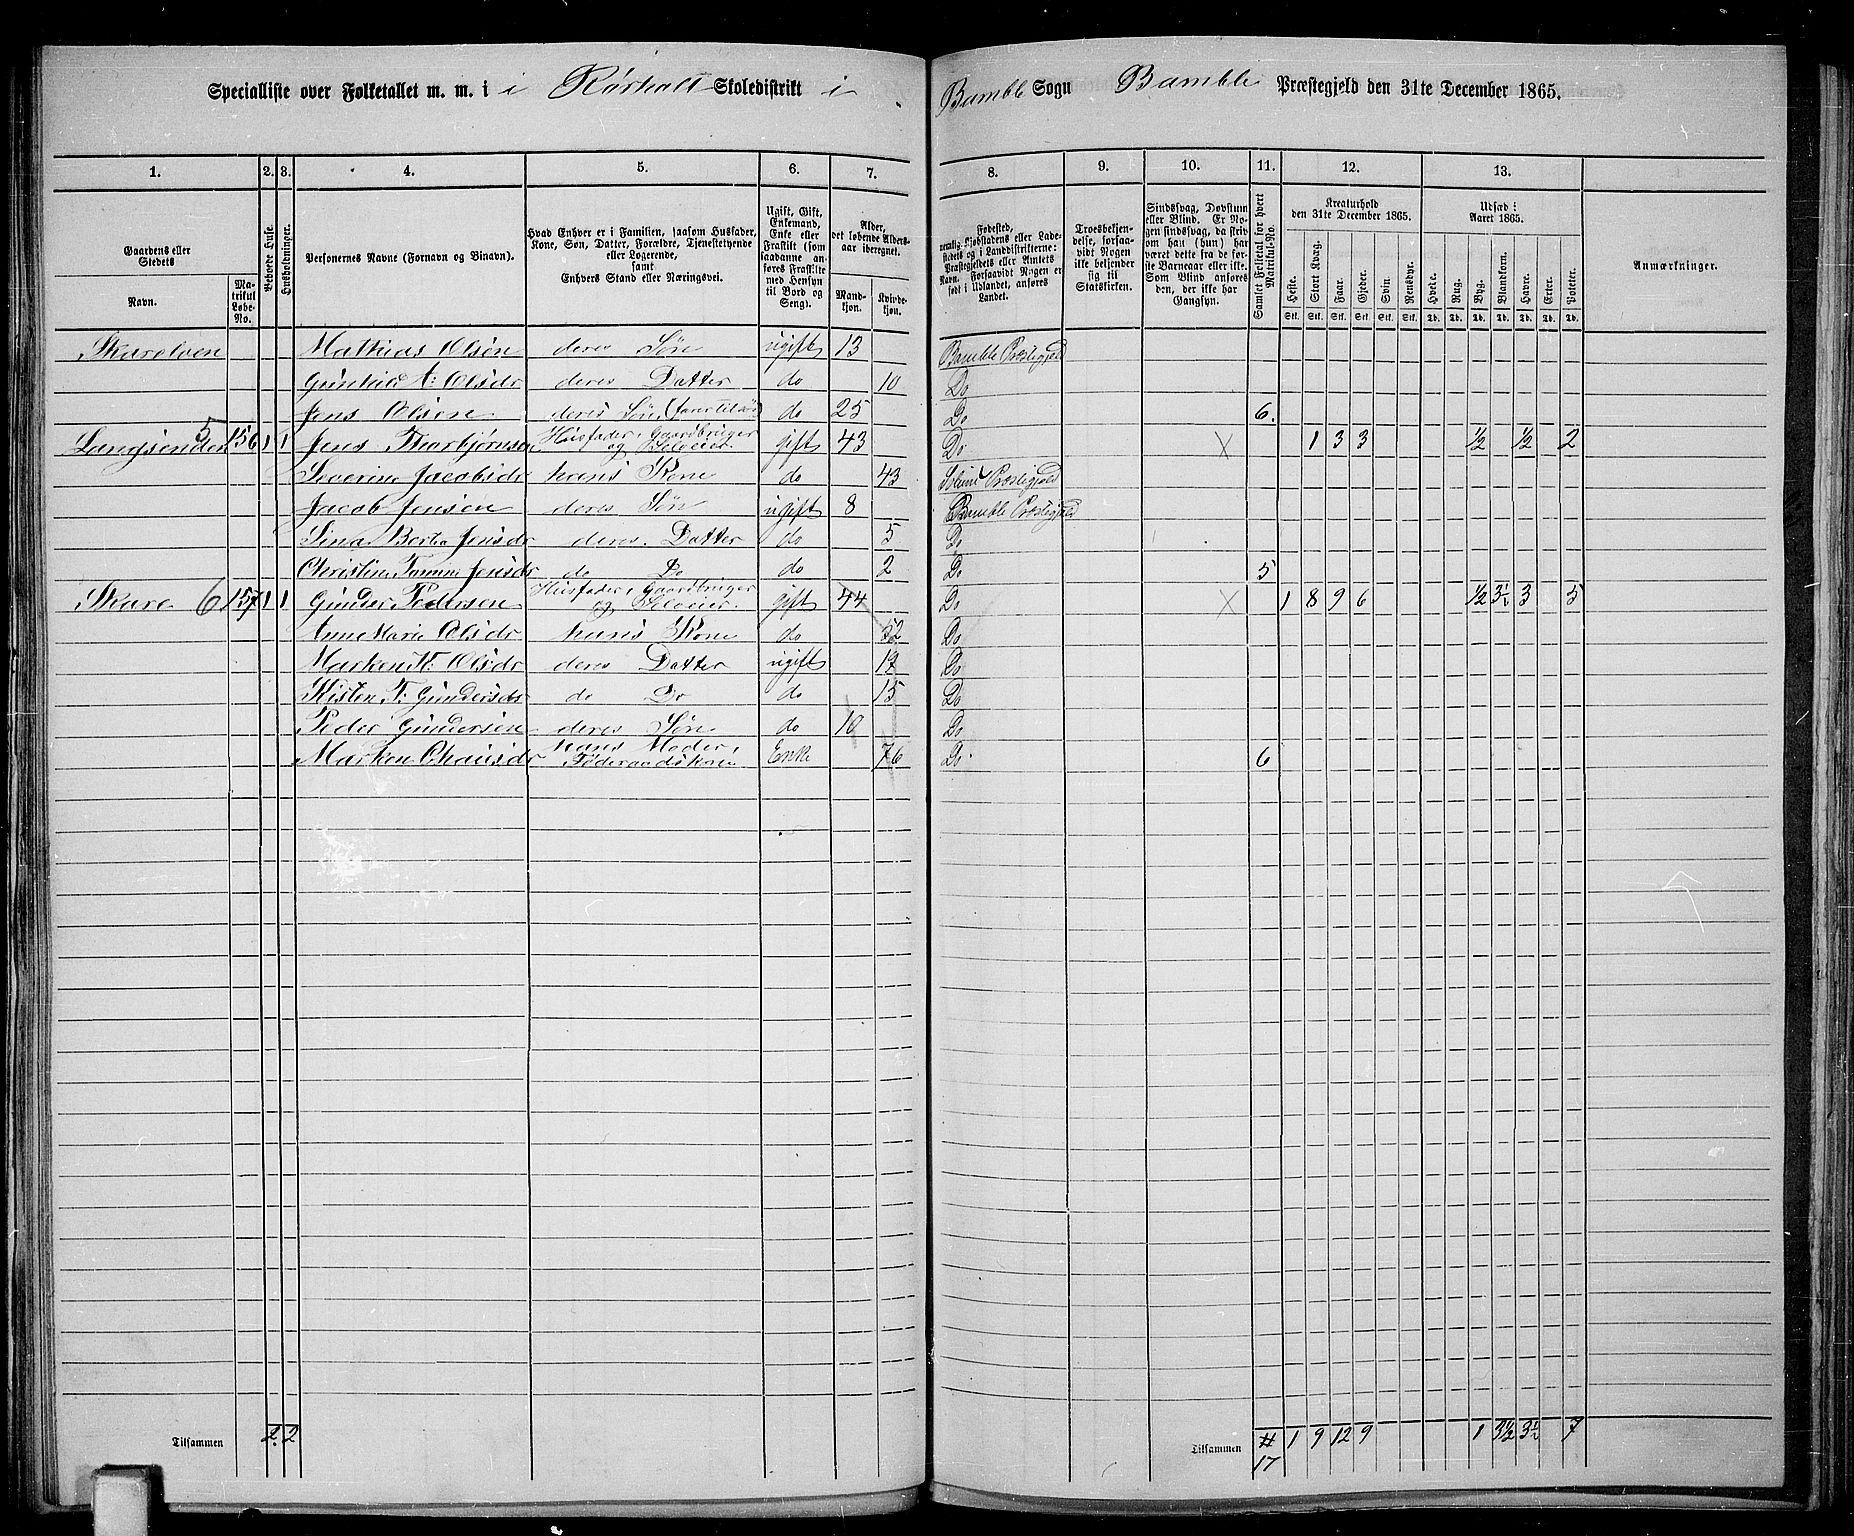 Specialliste over Folketallet m. m. i i Rørholt Skoledistrikt i Bamble Sogn Bamble Præstegjeld den 31te December 1865.
1. 2. 3. 4. 5. 6. 7. 8. 9. 10. 11. 12. 13.
Gaardens eller Stedets
Navn.
Matrikul Løbe-No.
Beboede Huse.
Husholdninger.
Personernes Navne (Fornavn og Binavn).
Hvad Enhver er i Familien, saasom Husfader, Kone, Søn, Datter, Forældre, Tjenestetyende eller Logerende, samt Enhvers Stand eller Næringsvei.
Ugift, Gift, Enkemand, Enke eller Fraskilt (som saadanne anføres Fraskilte med Hensyn til Bord og Seng).
Alder, det løbende Aldersaar iberegnet.
Mandkjøn. Kvindekjøn.
Fødested,
Troesbekjendelse, forsaavidt Nogen ikke bekjender sig til Statskirken.
Sindssvag, Døvstum eller Blind. Er Nogen sindssvag, da skriv om han (hun) har været dette fra de første Barneaar eller ikke. Som Blind anføres den, der ikke har Gangsyn.
Samlet Folketal for hvert Matrikul-No.
Kreaturhold den 31te December 1865.
Heste. Stort Kvæg. Faar. Gjeder. Svin Rensdyr.
Stk. Stk. Stk. Stk. Stk. Stk.
Udsæd i Aaret 1865.
Hvede. Rug. Byg. Blandkorn. Havre. Erter. Poteter.
Td. Td. Td. Td. Td. Td. Td.
Anmærkninger.
Mathias Olsen deres Søn ugift 13 Bamble Præstegjeld
Olsdr deres Datter do 10 Do
Jens Olsen deres Søn do 25 Do 6.
5 156 1 1 Jens Thorbjørnsen Husfader, Gaardbruger og Selveier gift 43 Do X 1 3 3 ½ ½ 2
Severine Jacobsdr hans Kone do 43 Præstegjeld
Jacob Jensen deres Søn ugift 8 Bamble Præstegjeld
Jensdr deres Datter do 5 Do
Jensdr do Do do 2 Do 5
Skare 6 157 1 1 Gunder Pedersen Husfader, Gaardbruger og Selveier gift 44 Do X 1 8 9 6 ½ 3½ 3 5
Anne Marie Olsdr hans Kone do 52 Do
Olsdr deres Datter ugift Do
Gundersdr do Do do 15 Do
Peder Gundersen deres Søn do 10 Do
hans Moder, Føderaadskone Enke 76 Do 6
Tilsammen 2. 2 Tilsammen 17 1 9 12 9 1 3½ 3½ 7